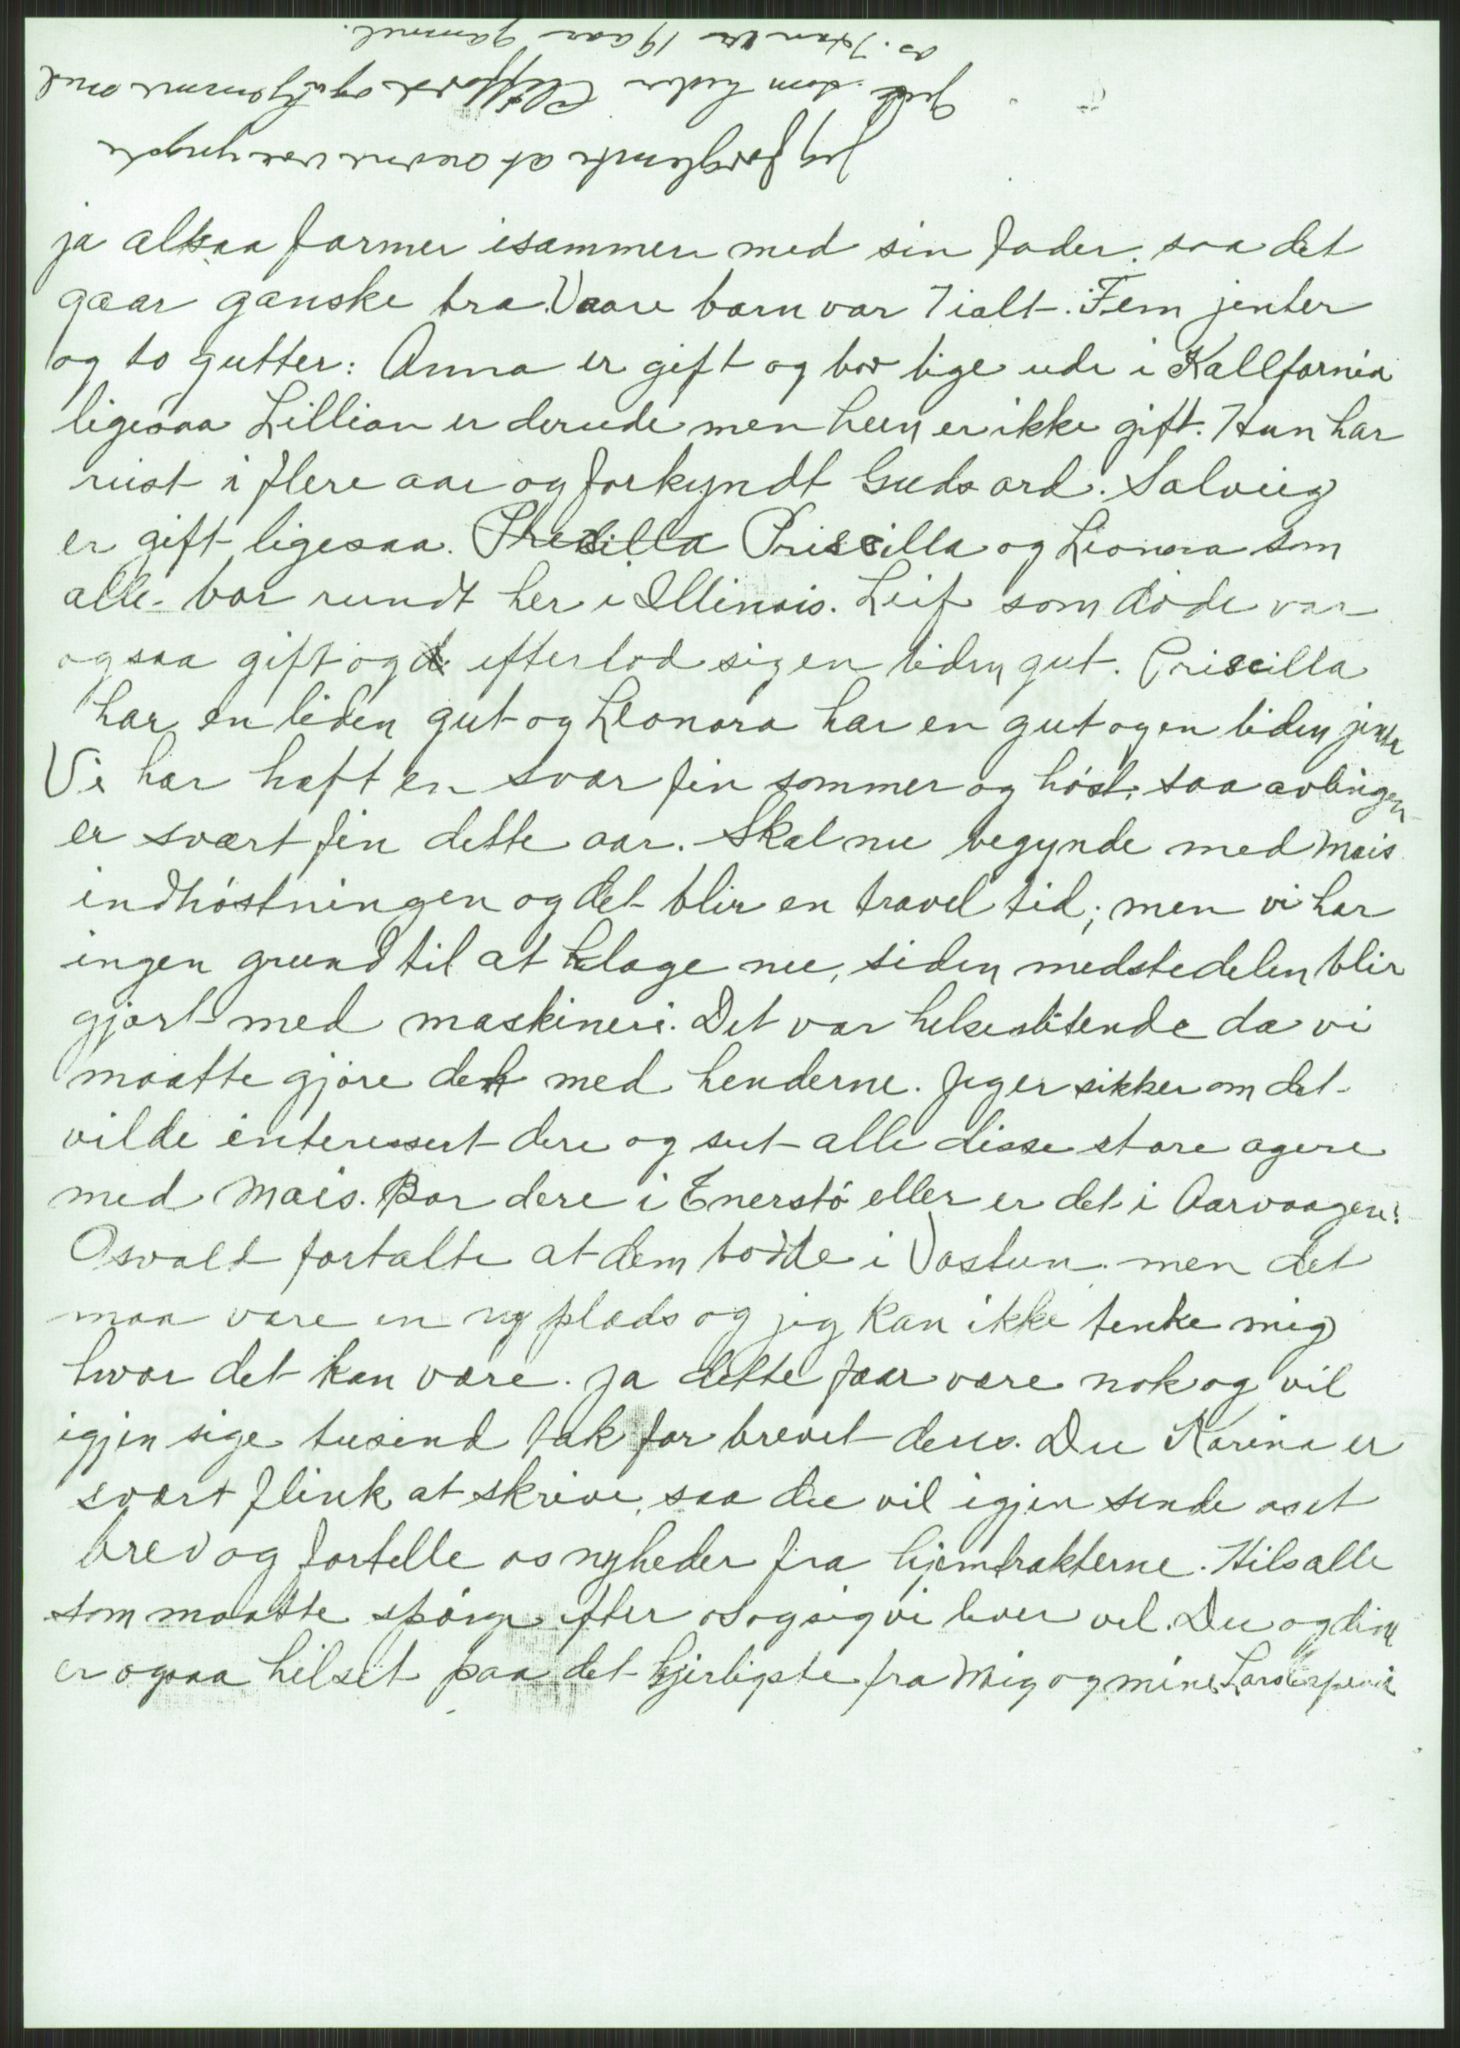 Jeg forglemte at nevne vor yngste
gut som heder Clifford og er hjemme med
os. Han er 19 aar gammel.
ja altsaa farmer isammen med sin fader. saa det
gaar ganske bra. Vaare barn var 7 ialt. Fem jenter
og to gutter: Anna er gift og bor lige ude i Kallfornia
ligesaa Lillian er derude men hun er ikke gift. Hun har
reist i flere aar og forkyndt Guds ord. Solveig
er gift ligesaa. Presilla Priscilla og Leonora som
alle bor rundt her i Illinois. Leif som døde var
ogsaa gift og efterlod sig en liden gut. Priscilla
har en liden gut og Leonora har en gut og en liden jente
Vi har haft en svær fin sommer og høst, saa avlingen
er svært fin dette aar. Skal nu begynde med Mais
indhøstningen og det blir en travel tid; men vi har
ingen grund til at klage nu, siden medstedelen blir
gjort med maskineri. Det var helseslitende da vi
maatte gjøre det med henderne. Jeg er sikker om det
vilde interessert dere og set alle disse store agere
med Mais. Bor dere i Enerstø eller er det i Aarvaagen?
Osvald fortalte at dem bodde i Vastun men det
maa være en ny plads og jeg kan ikke tenke mig
hvor det kan være. Ja dette faar være nok og vil
igjen sige tusend tak for brevet deres. Du Karina er
svært flink at skrive, saa du vil igjen sende os et
brev og fortelle os nyheder fra hjemtrakterne. Hils alle
som maatte spørge efter os og sig vi lever vel. Du og dine
er ogsaa hilset paa det kjerligste fra Mig og mine. Lars